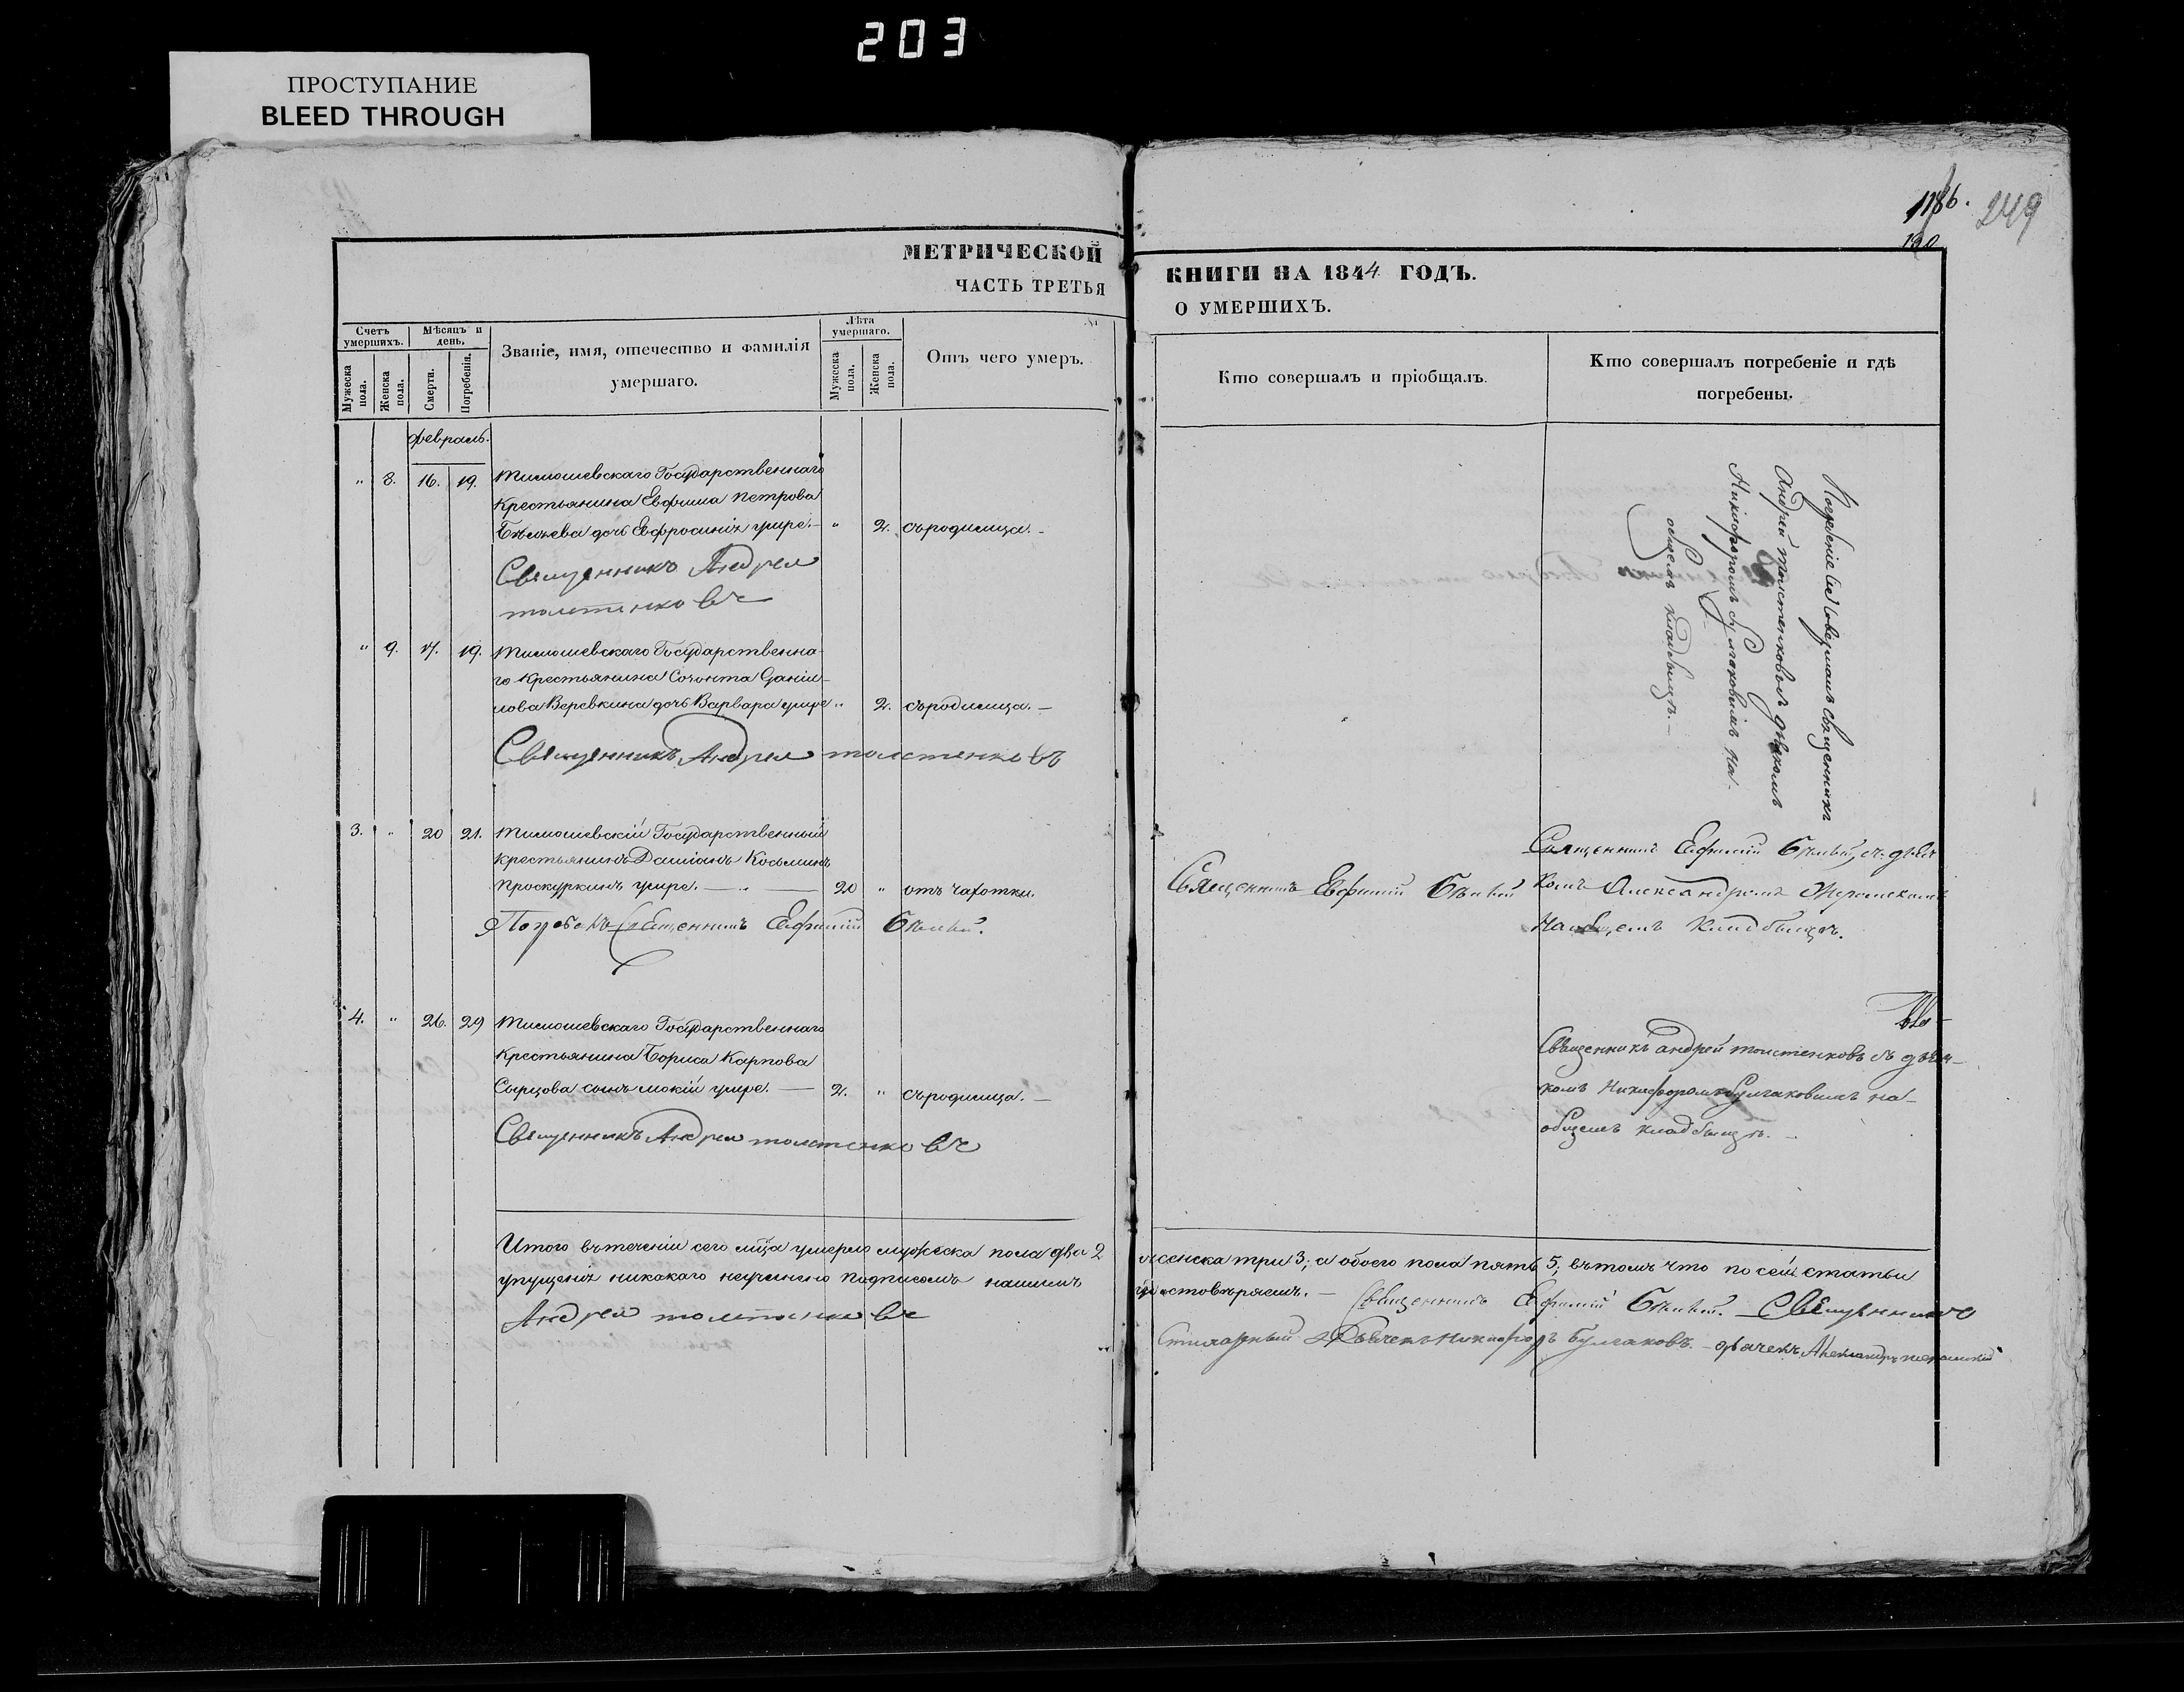 203
ПРОСТУПАНИЕ
BLEED THROUGH
1186.
249
190
МЕТРИЧЕСКОЙ
ЧАСТЬ ТРЕТЬЯ
КНИГИ НА 1844 ГОДЪ.
О УМЕРШИХЪ.
Счетъ умершихъ.
Мѣсяцъ и день.
Званіе, имя, отечество и фамилія умершаго.
Лѣта умершаго.
Отъ чего умеръ.
Мужеска пола.
Женска пола.
Смерти.
Погребенія.
Мужеска пола.
Женска пола.
Кто совершалъ и пріобщалъ.
Кто совершалъ погребеніе и гдѣ
погребены.
Февраль.
" 8. 16. 19. Тимошевскаго Государственнаго
крестьянина Евфима Петрова
дочь Евфросинія умре. " 2. съродимца.
Священникъ Андрей
Толстенковъ
" 9. 17. 19. Тимошевскаго Государственна-
го крестьянина Созонта Даніи-
лова Веревкина дочь Варвара умре " 2. съродимца.
Священникъ Андрей Толстенковъ
Погребеніе совершалъ священникъ
Андрей Толстенковъ дьякомъ
Никифоромъ Булгаковымъ на
общемъ кладбищѣ.
3. " 20 21. Тимошевскій Государственный
крестьянинъ Даміанъ Косьминъ
Проскуркинъ умре. 20 " отъ чахотки.
Погребъ Священникъ Евфимій Бѣлый.
Священникъ Евфимій Бѣлый
Священникъ Евфимій Бѣлый, съ дьяч
комъ Александромъ
на общемъ кладбищѣ.
4. " 26. 29 Тимошевскаго Государственнаго
крестьянина Бориса Карпова
Сырцова сынъ Мокій умре. 2. " съродимца.
Священникъ Андрей Толстенковъ
Священникъ Андрей Толстенковъ съ дьяч-
комъ Никифоромъ Булгаковымъ на
общемъ кладбищѣ.
Итого въ теченіи сего мѣсца умерло мужеска пола два 2 женска три 3; а обоего пола пять 5; въ томъ что по сей статьи
упущенія никакаго неучинено подписомъ нашимъ удостовѣряемъ. Священникъ Евфимій Бѣлый. Священникъ
Андрей Толстенковъ
Дьячекъ Никифоръ Булгаковъ. Дьячекъ Александръ